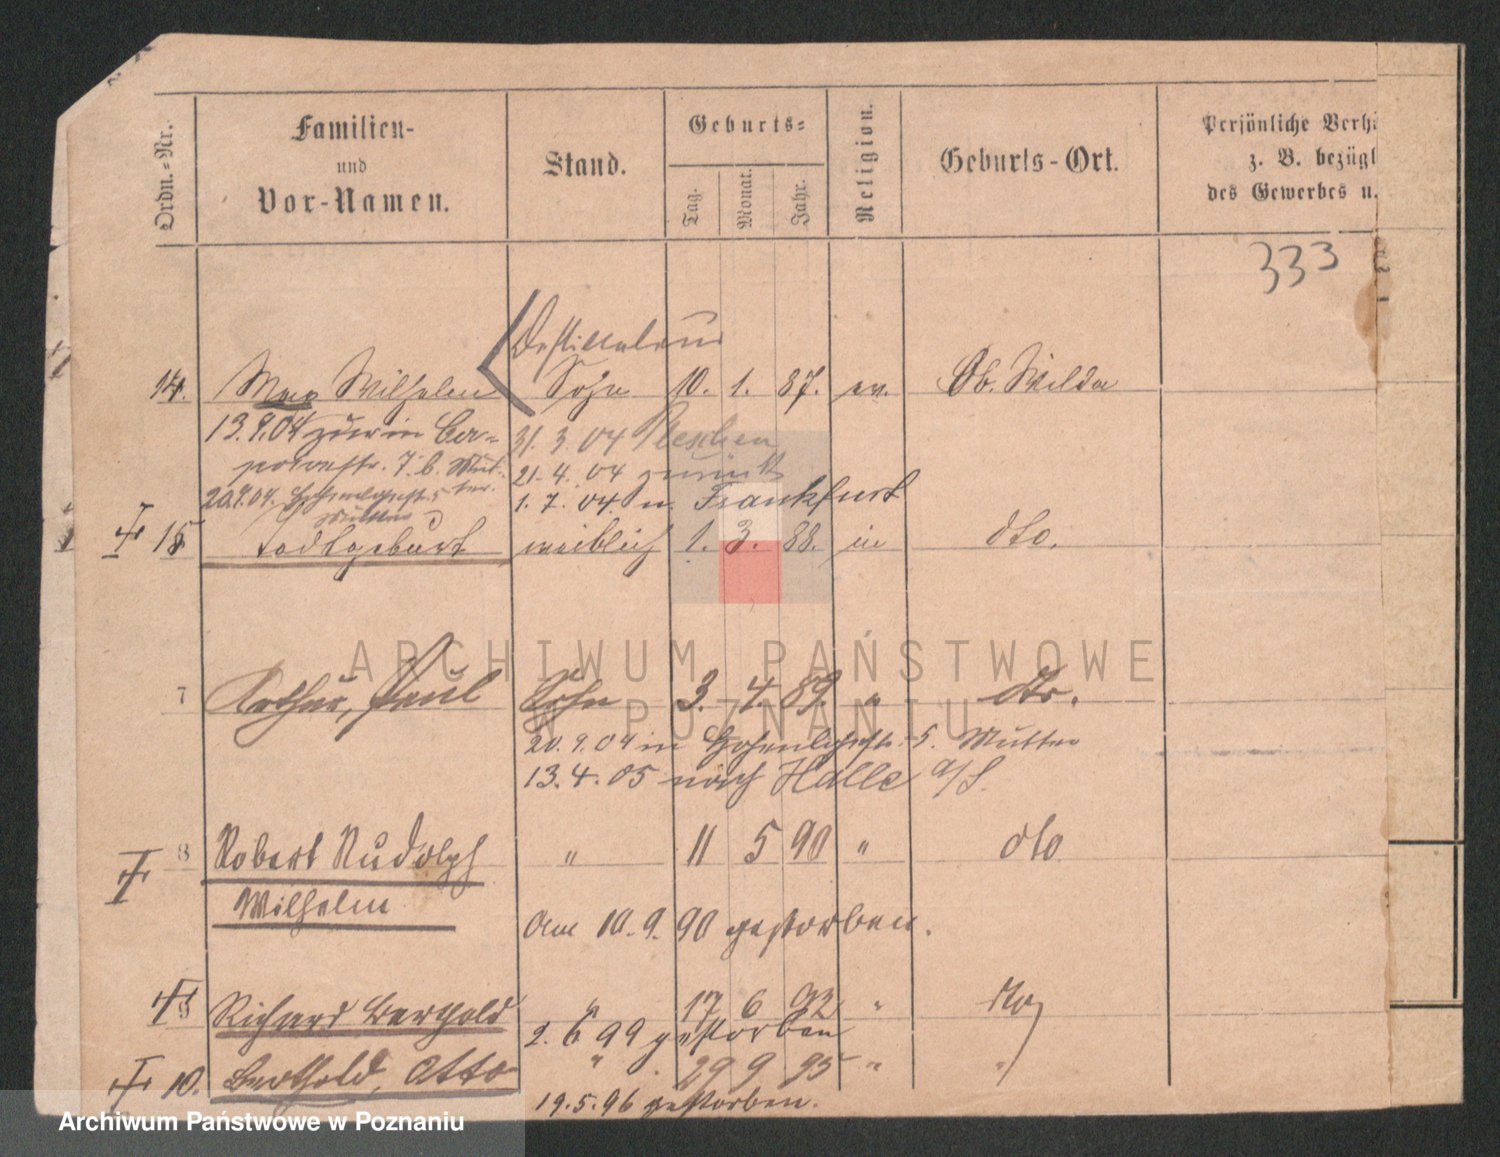 Ordn.-Nr.
Familien-
und
Vor-Namen.
Stand.
Geburts-
Tag.
Monat.
Jahr.
Religion.
Geburts-Ort.
Persönliche Verh
z. B. bezügl
des Gewerbes u.
333
Destillateur
14. Max Wilhelm Sohn 10. 1. 87. ev. Ob. Wilda
13.9.04 zur in Ber-
31. 3. 04 Pleschen
7. b. Mut-
21.4.04 zurück
20.9.04. Hohenlohestr. 5 ter.
1. 7. 04. n. Frankfurt
Mutter
15 Todtgeburt weiblich 1. 3. 88. dto.
7 Arthur, Paul Sohn 3. 4. 89. " dto.
20.9.04 in Hohenlohestr. 5. Mutter
13. 4. 05 nach Halle a/S.
8 Robert Rudolph " 11 5 90 " dto
Wilhelm
Am 10. 9. 90 gestorben.
Richard Berthold " 17 6 92 " dto
2. 6 99 gestorben
10. Berthold, Otto " 29 9 95 " "
19.5.96 gestorben.
ARCHIWUM PAŃSTWOWE
W POZNANIU
Archiwum Państwowe w Poznaniu